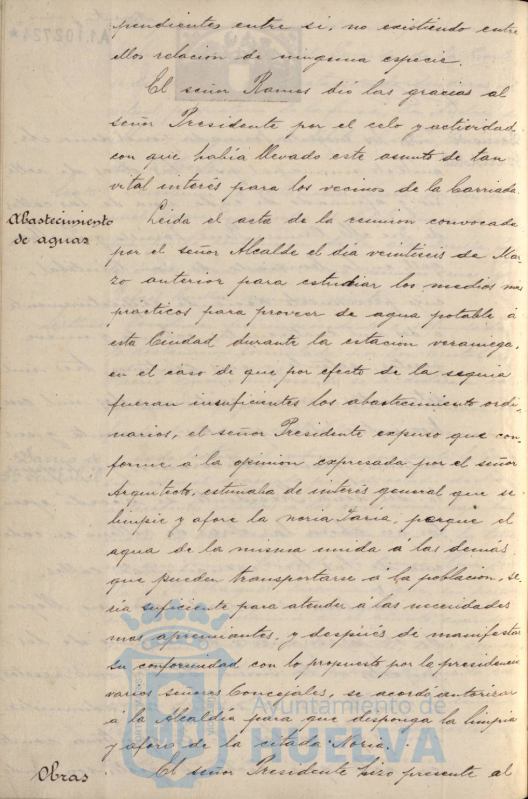 pendientes entre si, no existiendo entre
ellos relacion de ninguna especie.
El señor Ramos dió las gracias al
señor Presidente por el celo y actividad
con que habia llevado este asunto de tan
vital interés para los vecinos de la barriada.
Abastecimiento
de aguas
Leida el acta de la reunion convocada
por el señor Alcalde el dia veintiseis de Mar-
zo anterior para estudiar los medios mas
practicos para proveer de agua potable á
esta Ciudad durante la estacion veraniega,
en el caso de que por efecto de la sequia
fueran insuficientes los abastecimiento ordi-
narios, el señor Presidente expuso que con-
forme á la opinion expresada por el señor
Arquitecto, estimaba de interés general que se
limpie y afore la noria, porque el
agua de la misma unida á las demás
que pueden transportarse á la poblacion, se-
ria suficiente para atender á las necesidades
mas apremiantes, y después de manifestar
su conformidad con lo propuesto por la presidencia
varios señores Concejales, se acordó autorizar
á la Alcaldía para que disponga la limpia
y aforo de la citada Noria.
Obras
El señor Presidente hizo presente al
Ayuntamiento de
HUELVA